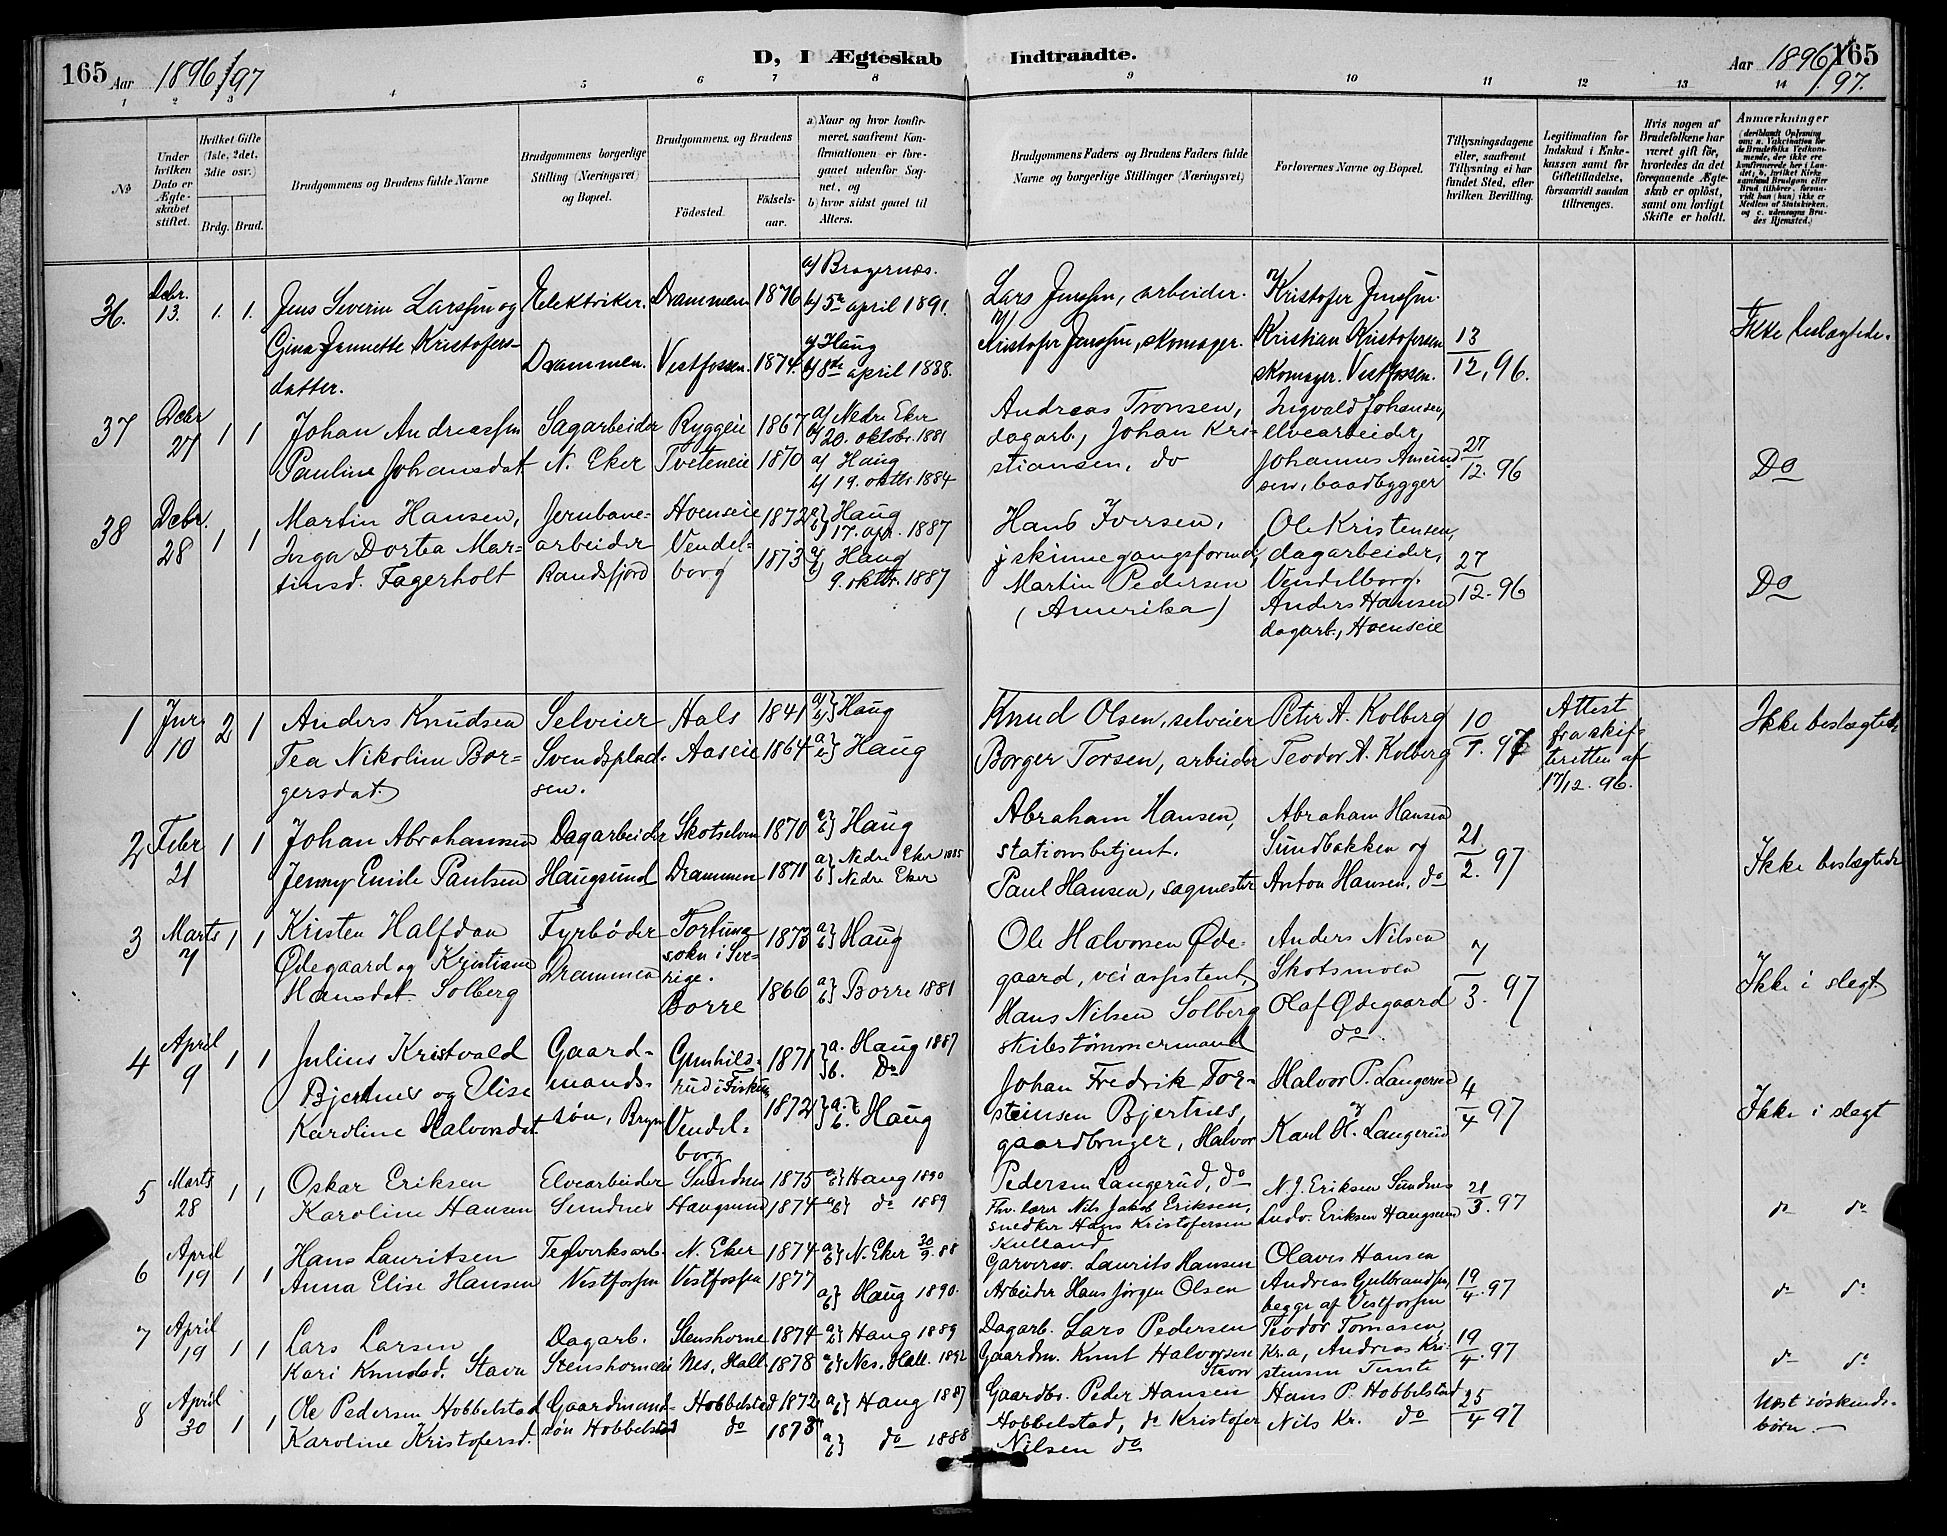 165 Aar 1896/97
D, I Ægteskab Indtraadte.
Aar 1896/97. 165
1 2 3 4 5 6 7 8 9 10 11 12 13 14
No
Under hvilken Dato er Ægteskabet stiftet.
Hvilket Gifte (1ste, 2det, 3die osv.)
Brdg. Brud.
Brudgommens og Brudens fulde Navne
Brudgommens borgerlige Stilling (Næringsvei) og Bopæl.
Brudgommens og Brudens
Fødested.
Fødselsaar.
a) Naar og hvor konfirmeret, saafremt Konfirmationen er foregaaet udenfor Sognet, og
b) hvor sidst gaaet til Alters.
Brudgommens Faders og Brudens Faders fulde Navne og borgerlige Stillinger (Næringsvei)
Forlovernes Navne og Bopæl.
Tillysningsdagene eller, saafremt Tillysning ei har fundet Sted, efter hvilken Bevilling.
Legitimation for Indskud i Enkekassen samt for Giftetilladelse, forsaavidt saadan tiltrænges.
Hvis nogen af Brudefolkene har været gift før, hvorledes da det foregaaende Ægteskab er opløst, samt om lovligt Skifte er holdt.
Anmærkninger
36. Debr. 13. 1. 1. Jens Severin Larssen og
Gina Jannette Kristofers-
datter.
Elektriker.
Drammen.
Drammen 1876
Vestfossen. 1874.
a) Bragernæs.
b) 5te april 1891.
a) Haug
b) 8de april 1888.
Lars Jenssen, arbeider.
Kristofer Jenssen, skomager.
Kristofer Jenssen.
Kristian Kristofersen
skomager. Vestfossen.
13/12, 96.
Ikke beslægtede.
37 Debr 27 1 1 Johan Andreassen
Pauline Johansdat
Sagarbeider
N. Eker
Ryggeie 1867
Tveteneie 1870
a) Nedre Eker
b) 20. oktobr. 1881
a) Haug
b) 19. oktbr 1884
Andreas Tronsen,
dagarb., Johan Kri-
stiansen, do
Ingvald Johansen,
elvearbeider,
Johannes Amund
sen, baadbygger
27/12. 96
Do
38 Debr. 28 1 1 Martin Hansen,
Inga Dortea Mar-
tinsd. Fagerholt
Jernbane-
arbeider
Randsfjord
Hoenseie 1872
Vendel-
borg 1873
a) b) Haug
17. apr. 1887
a) b) Haug
9. oktbr. 1887
Hans Iversen,
skinnegangsformd,
Martin Pedersen
(Amerika)
Ole Kristensen,
dagarbeider,
Vendelborg.
Anders Hansen
dagarb., Hoenseie
27/12. 96
Do
1 Jnr. 10 2 1 Anders Knudsen
Tea Nikoline Bor-
gersdat.
Selveier
Svendsplad-
sen.
Hals 1841
Aaseie 1864
a) b) Haug
a) b) Haug
Knud Olsen, selveier
Borger Torsen, arbeider
Peter A. Kolberg
Teodor A. Kolberg
10/1. 97
Attest
fra skif-
teretten af
17/12. 96.
Ikke beslægtede
2 Febr 21 1 1 Johan Abrahamsen
Jenny Emilie Paulsen
Dagarbeider
Haugsund
Skotselven 1870
Drammen 1871
a) b) Haug
a) Nedre Eker 1885
b) Nedre Eker
Abraham Hansen,
stationsbetjent.
Paul Hansen, sagmester
Abraham Hansen
Sundbakken og
Anton Hansen, do
21/2. 97
Ikke beslægtede
3 Marts 7 1 1 Kristen Halfdan
Ødegaard og Kristiane
Hansdat Solberg
Fyrbøder
Drammen
Fortuna
sokn i Sve-
rige. 1873
Borre 1866
a) b) Haug
a) b) Borre 1881
Ole Halvorsen Øde-
gaard, veiassistent,
Hans Nilsen Solberg
skibstømmermand
Anders Nilsen
Skotsmoen
Olaf Ødegaard
do
7/3. 97
Ikke i slegt
4 April 9 1 1 Julius Kristvald
Bjertnes og Elise
Karoline Halvorsdat
Gaard-
mands-
søn, Bryn
Gunhild-
rud i Fiskum 1871
Vendel-
borg 1872
a. Haug 1887
b. Do
a. b. Haug
Johan Fredrik Tor-
steinsen Bjertnes,
gaardbruger, Halvor
Pedersen Langerud, do
Halvor P. Langerud
Karl H. Langerud
4/4 97
Ikke i slegt
5 Marts 28 1 1 Oskar Eriksen
Karoline Hansen
Elvearbeider
Sundnes
Sundnes 1875
Haugsund 1874
a) b) Haug 1890
a) b) do 1889
Fhv. lærer Nils Jakob Eriksen,
snedker Hans Kristofersen
Kulland
N. J. Eriksen Sundnes
Ludv. Eriksen Haugsund
21/3. 97
do do
6 April 19 1 1 Hans Lauritsen
Anna Elise Hansen
Teglverksarb.
Vestfossen
N. Eker 1874
Vestfossen 1877
a) b) N. Eker 30/9. 88
a) b) Haug 1890.
Garversv. Laurits Hansen
Arbeider Hans Jørgen Olsen
Olaves Hansen
Andreas Gulbrandsen,
begge af Vestfossen
19/4. 97
do do
7 April 19 1 1 Lars Larsen
Kari Knudsd. Stavn
Dagarb.
Stenshorneie
Stenshorne 1874
Nes, Hall. 1878
a) b) Haug 1889
a) b) Nes. Hall. 1892
Dagarb. Lars Pedersen
Gaardm. Knut Halvorsen
Stavn
Teodor Tomasen
Kr.a, Andreas Kri-
stensen Temte
19/4. 97
do do
8 April 30 1 1 Ole Pedersen Hobbelstad
Karoline Kristofersd.
Gaardmand-
søn Hobbelstad
Hobbelstad 1872
do 1873
a) b) Haug 1887
a) b) do 1888
Gaardbr. Peder Hansen
Hobbelstad, do Kristofer
Nilsen do
Hans P. Hobbelstad
Nils Kr. do
25/4 97
Næst søskende-
børn.